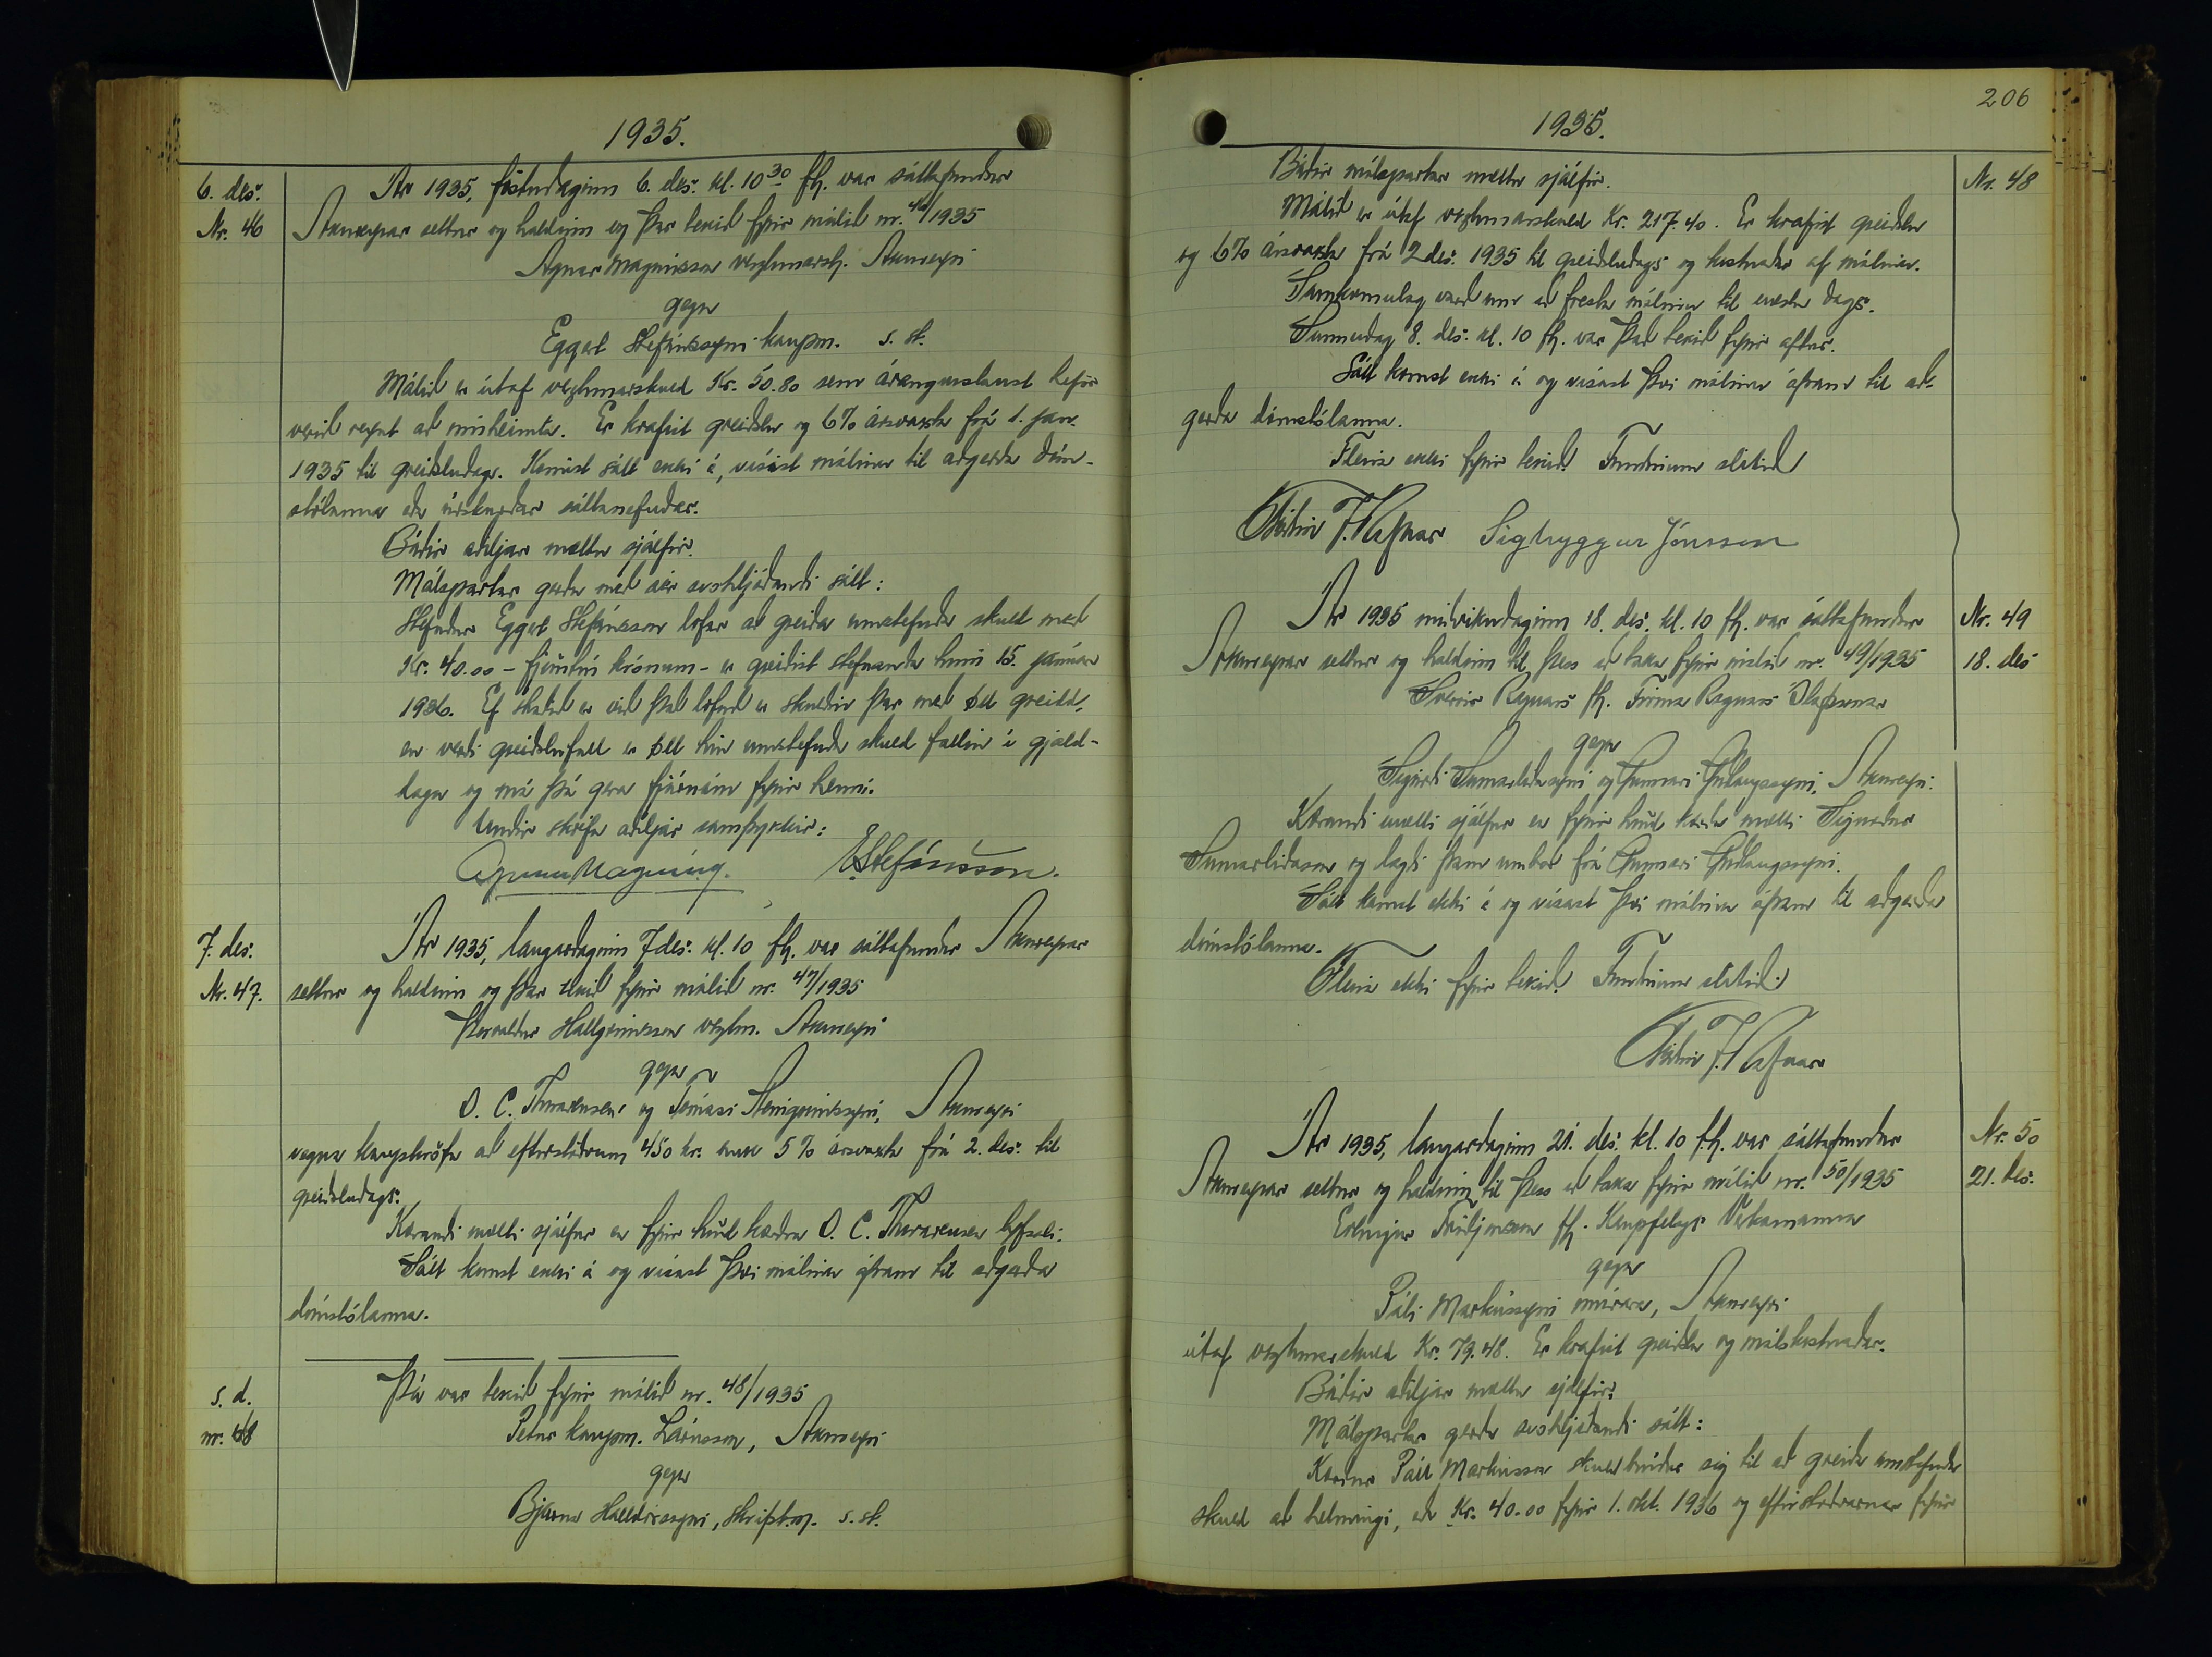 1935.
6. des.
Nr. 46
Ár 1935, föstudaginn 6. des. kl. 10 30 fh. var sáttafundur
Akureyrar settur og haldinn og þar tekið fyrir málið nr. 46/1935
Agnar Magnússon verzlunarstj. Akureyri
gegn
Eggert Stefánssyni kaupm. s. st.
Málið er útaf verzlunarskuld Kr. 50.80 sem árangurslaust hefir
verið reynt að innheimta. Er krafist greiðslu og 6% ársvaxta frá 1. jan.
1935 til greiðsludags. Komist sátt ekki á, vísist málinu til aðgerða dóm-
stólanna eða úrskurðar sáttanefndar.
Báðir aðiljar mættu sjálfir.
Málspartar gerðu með sér svohljóðandi sátt:
Stefndur Eggert Stefánsson lofar að greiða umstefnda skuld með
Kr. 40.00 - fjörutíu krónum - er greiðist stefnanda hinn 15. janúar
1936. Ef staðið er við það loforð er skuldin þar með öll greidd,
en verði greiðslufall er öll hin umstefnda skuld fallin í gjald-
daga og má þá gera fjárnám fyrir henni.
Undir skrifa aðiljar samþykkir:
Agnar Magnúss. EStefánsson.
7. des.
Nr. 47.
Ár 1935, laugardaginn 7. des. kl. 10 fh. var sáttafundur Akureyrar
settur og haldinn og þar tekið fyrir málið nr. 47/1935
Þorvaldur Hallgrímsson verzlm. Akureyri
gegn
O. C. Thorarensen og Tómasi Steingrímssyni, Akureyri
vegna kaupkröfu að eftirstöðvum 450 kr. auk 5% ársvaxta frá 2. des. til
greiðsludags.
Kærandi mætti sjálfur en fyrir hönd kærðra O. C. Thorarensen lyfsali.
Sátt komst ekki á og vísast því málinu áfram til aðgerða
dómstólanna.
s. d.
nr. 48
Þá var tekið fyrir málið nr. 48/1935
Petur kaupm. Lárusson, Akureyri
gegn
Bjarna Halldórssyni, skrifst.m. s. st.
206
1935.
Nr. 48
Báðir málspartar mættu sjálfir.
Málið er útaf verzlunarskuld Kr. 217.40. Er krafist greiðslu
og 6% ársvaxta frá 2 des. 1935 til greiðsludags og kostnaðar af málinu.
Samkomulag varð um að fresta málinu til næsta dags.
Sunnudag 8. des. kl. 10 fh. var það tekið fyrir aftur.
Sátt komst ekki á og vísast því málinu áfram til að-
gerða dómstólanna.
Fleira ekki fyrir tekið. Fundinum slitið
Friðrik J. Rafnar Sigtryggur Jónsson
Nr. 49
18. des
Ár 1935 miðvikudaginn 18. des. kl. 10 fh. var sáttafundur
Akureyrar settur og haldinn til þess að taka fyrir málið nr. 49/1935
Sverrir Ragnars fh. Firma Ragnars Ólafssonar
gegn
Sigurði Sumarliðasyni og Gunnari Guðlaugssyni, Akureyri.
Kærandi mætti sjálfur en fyrir hönd kærðu mætti Sigurður
Sumarliðason og lagði fram umboð frá Gunnari Guðlaugssyni.
Sátt komst ekki á og vísast því málinu áfram til aðgerða
dómstólanna.
Fleira ekki fyrir tekið. Fundinum slitið.
Friðrik J. Rafnar
Nr. 50
21. des.
Ár 1935, laugardaginn 21. des. kl. 10 f.h. var sáttafundur
Akureyrar settur og haldinn til þess að taka fyrir málið nr. 50/1935
Erlingur Friðjónsson fh. Kaupfélags Verkamanna
gegn
Páli Markússyni múrara, Akureyri
útaf verzlunarskuld Kr. 79.48. Er krafist greiðslu og málskostnaðar.
Báðir aðiljar mættu sjálfir.
Málspartar gerðu svohljóðandi sátt:
Kærður Páll Markússon skuldbindur sig til að greiða umstefnda
skuld að helmingi, eða Kr. 40.00 fyrir 1. okt. 1936 og eftirstöðvarnar fyrir